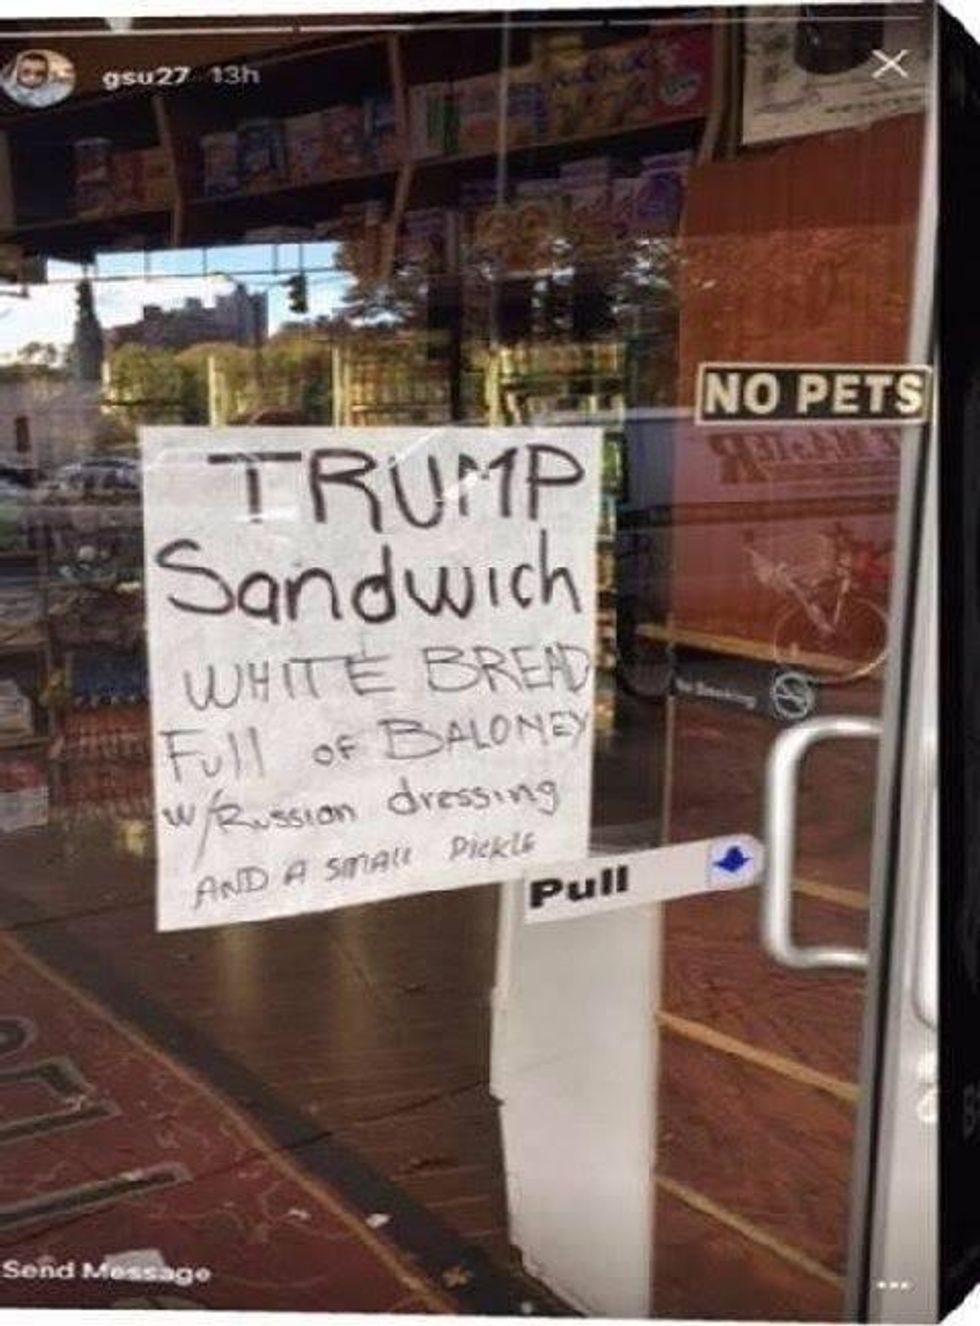 gsu27 13h
NO PETS
TRUMP
Sandwich
WHITE BREAD
Full OF BALONEY
W/Russian dressing
AND A SMAll PICKLE
No Smoking
Pull
Send Message